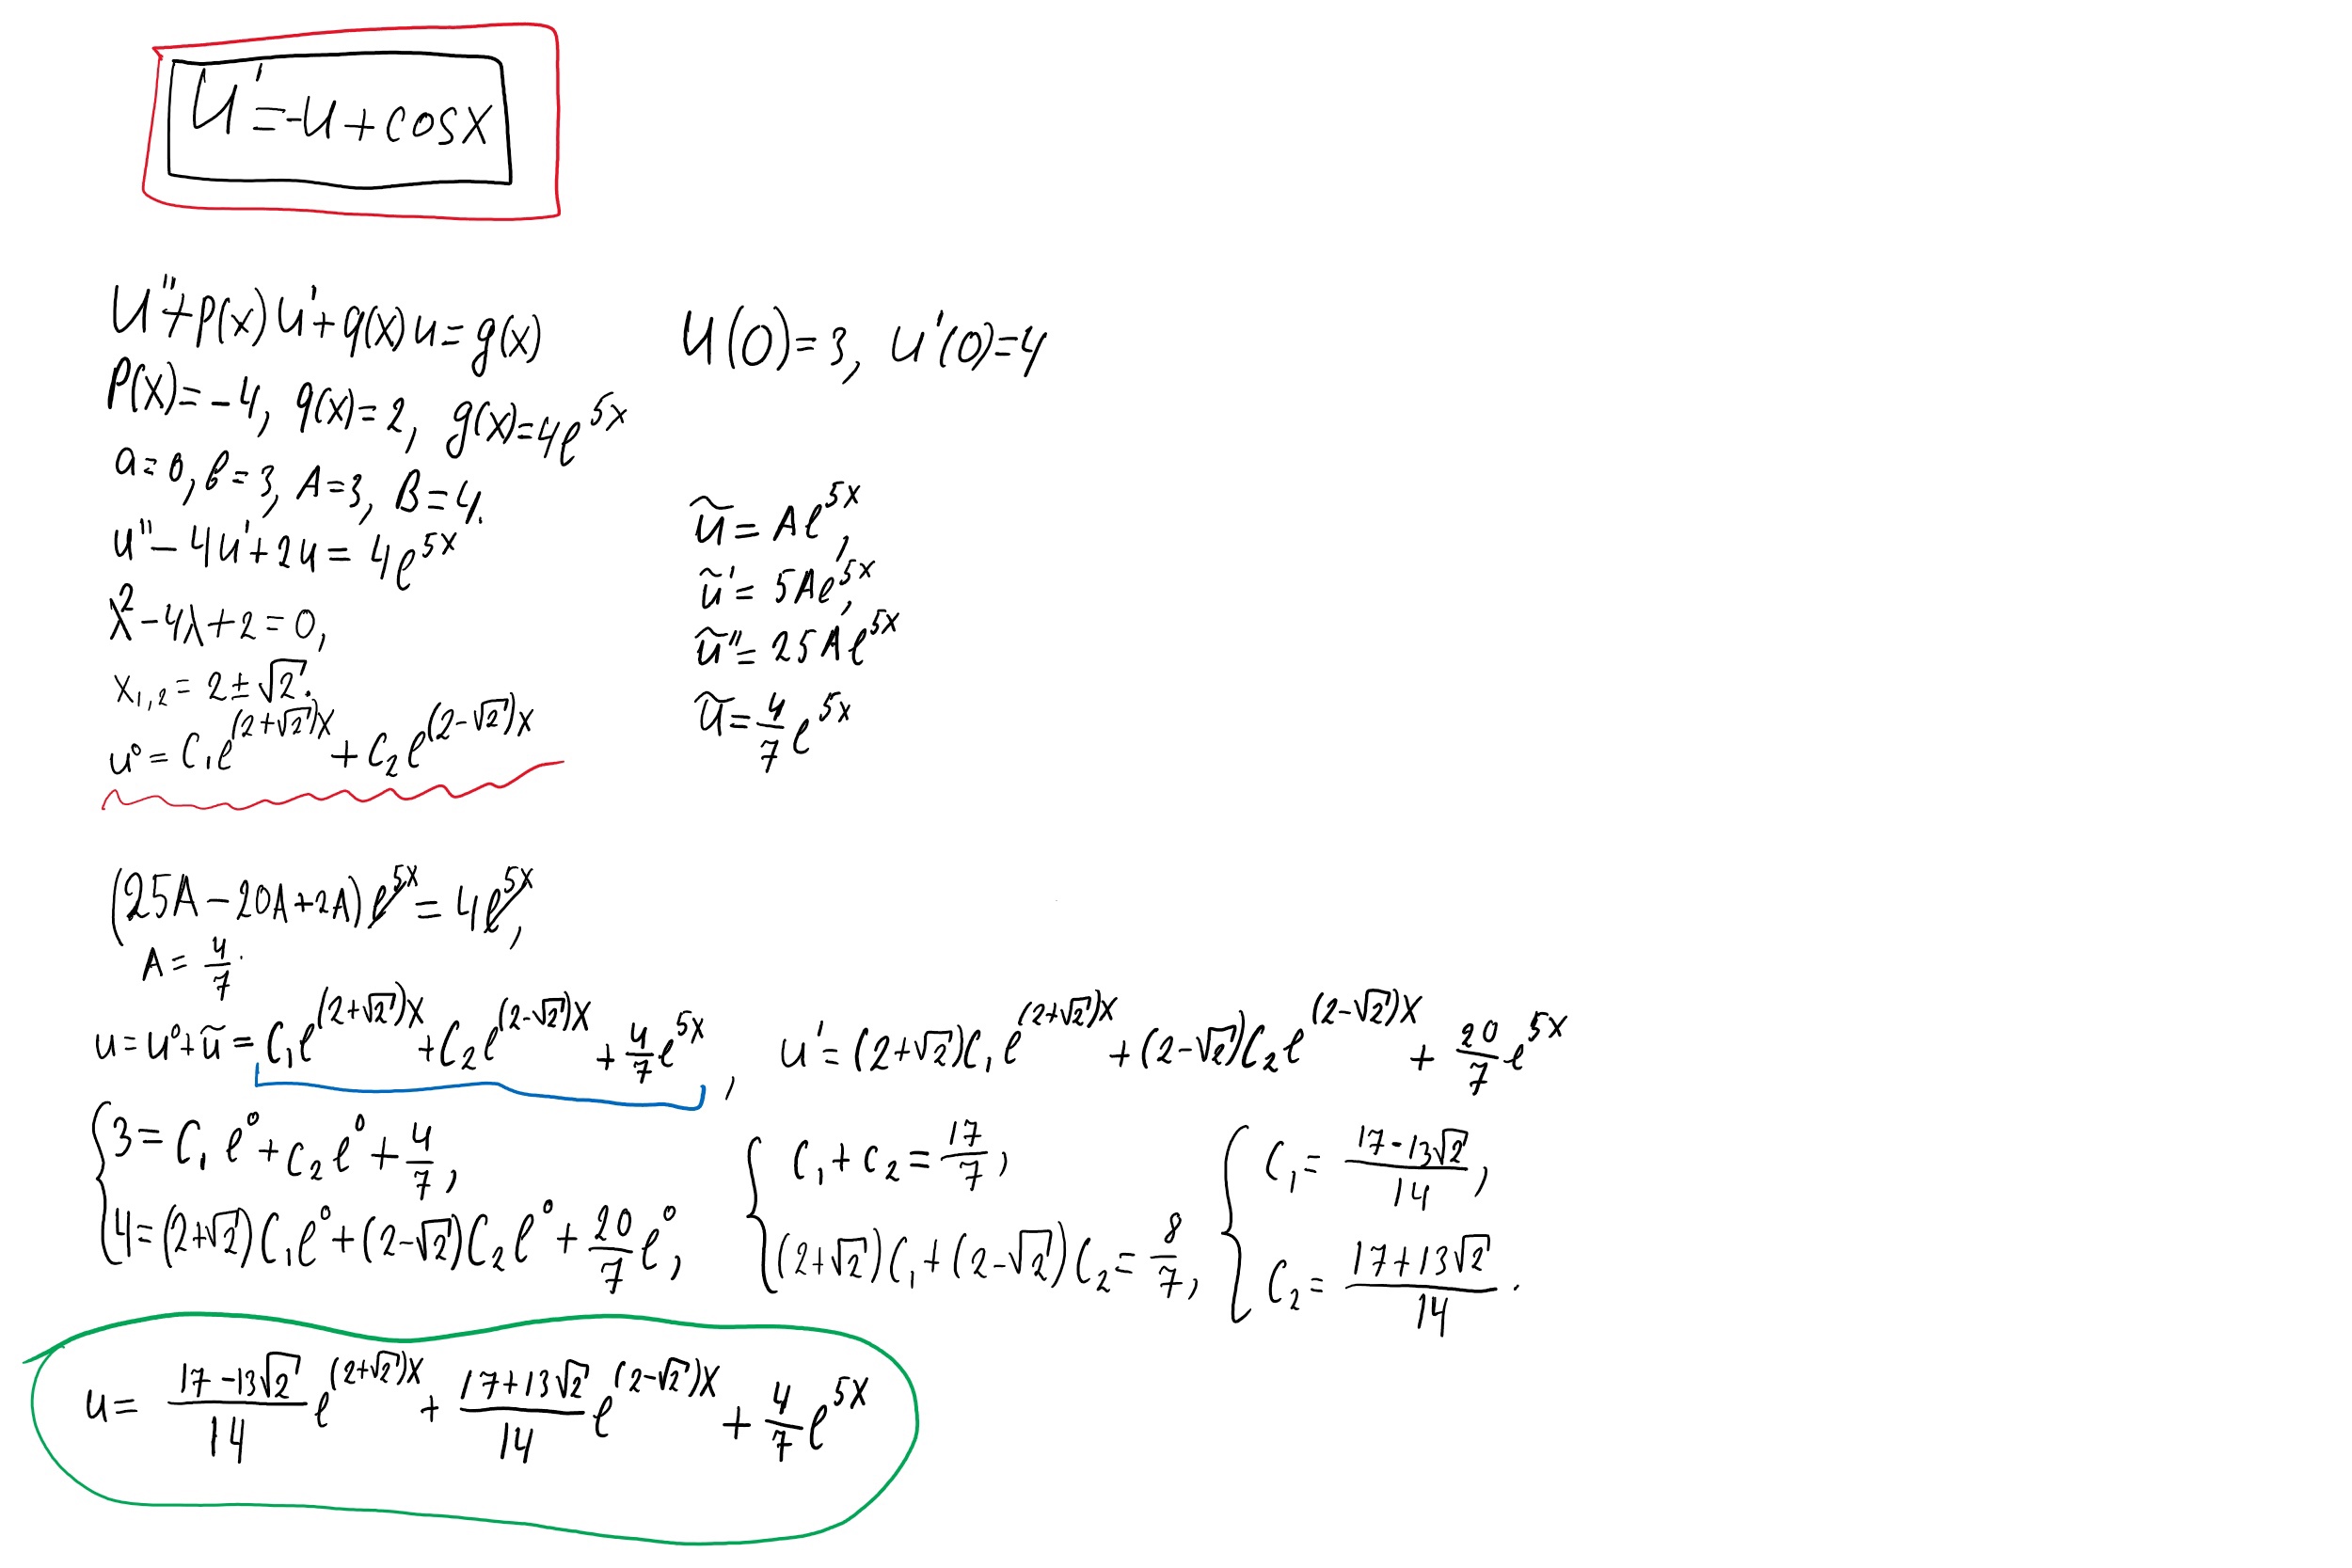 u' = -u + cosx
u'' + p(x)u' + q(x)u = g(x)
u(0) = 3, u'(0) = 4
p(x) = -4, q(x) = 2, g(x) = 4e^{5x}
a = 0, b = 3, A = 3, B = 4.
u'' - 4u' + 2u = 4e^{5x}
λ² - 4λ + 2 = 0,
x_{1,2} = 2 ± √2.
u⁰ = C₁e^{(2+√2)x} + C₂e^{(2-√2)x}
ũ = Ae^{5x},
ũ' = 5Ae^{5x},
ũ'' = 25Ae^{5x}
ũ = 4/7 e^{5x}
(25A - 20A + 2A)e^{5x} = 4e^{5x},
A = 4/7.
u = u⁰ + ũ = C₁e^{(2+√2)x} + C₂e^{(2-√2)x} + 4/7 e^{5x}, u' = (2+√2)C₁e^{(2+√2)x} + (2-√2)C₂e^{(2-√2)x} + 20/7 e^{5x}
{ 3 = C₁e⁰ + C₂e⁰ + 4/7,
4 = (2+√2)C₁e⁰ + (2-√2)C₂e⁰ + 20/7 e⁰,
{ C₁ + C₂ = 17/7,
(2+√2)C₁ + (2-√2)C₂ = 8/7,
{ C₁ = (17-13√2)/14,
C₂ = (17+13√2)/14.
u = (17-13√2)/14 e^{(2+√2)x} + (17+13√2)/14 e^{(2-√2)x} + 4/7 e^{5x}